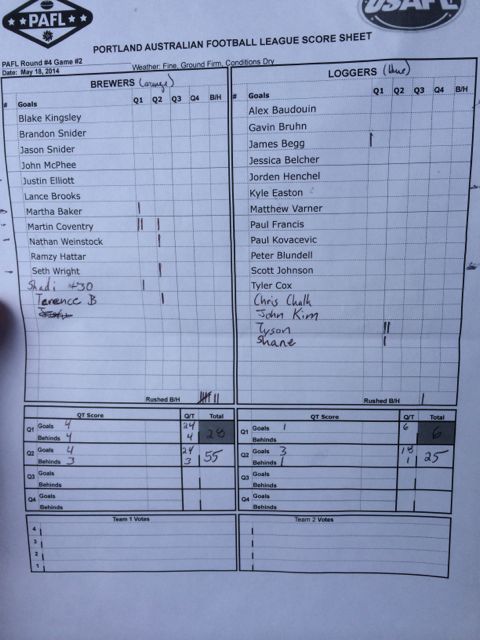 PAFL
USAFL
PORTLAND AUSTRALIAN FOOTBALL LEAGUE SCORE SHEET
PAFL Round #4 Game #2
Date: May 18, 2014
Weather: Fine, Ground Firm, Conditions Dry
BREWERS (orange)
# Goals Q1 Q2 Q3 Q4 B/H
Blake Kingsley
Brandon Snider
Jason Snider
John McPhee
Justin Elliott
Lance Brooks
Martha Baker |
Martin Coventry || |
Nathan Weinstock |
Ramzy Hattar
Seth Wright |
Shadi #30 |
Terence B |
Rushed B/H
QT Score Q/T Total
Q1 Goals 4 24
Behinds 4 4 28
Q2 Goals 4 24
Behinds 3 3 55
Q3 Goals
Behinds
Q4 Goals
Behinds
Team 1 Votes
4
3
2
1
LOGGERS (blue)
# Goals Q1 Q2 Q3 Q4 B/H
Alex Baudouin
Gavin Bruhn
James Begg |
Jessica Belcher
Jorden Henchel
Kyle Easton
Matthew Varner
Paul Francis
Paul Kovacevic
Peter Blundell
Scott Johnson
Tyler Cox
Chris Chalk
John Kim
Tyson ||
Shane |
Rushed B/H |
QT Score Q/T Total
Q1 Goals 1 6
Behinds 6
Q2 Goals 3 18
Behinds 1 1 25
Q3 Goals
Behinds
Q4 Goals
Behinds
Team 2 Votes